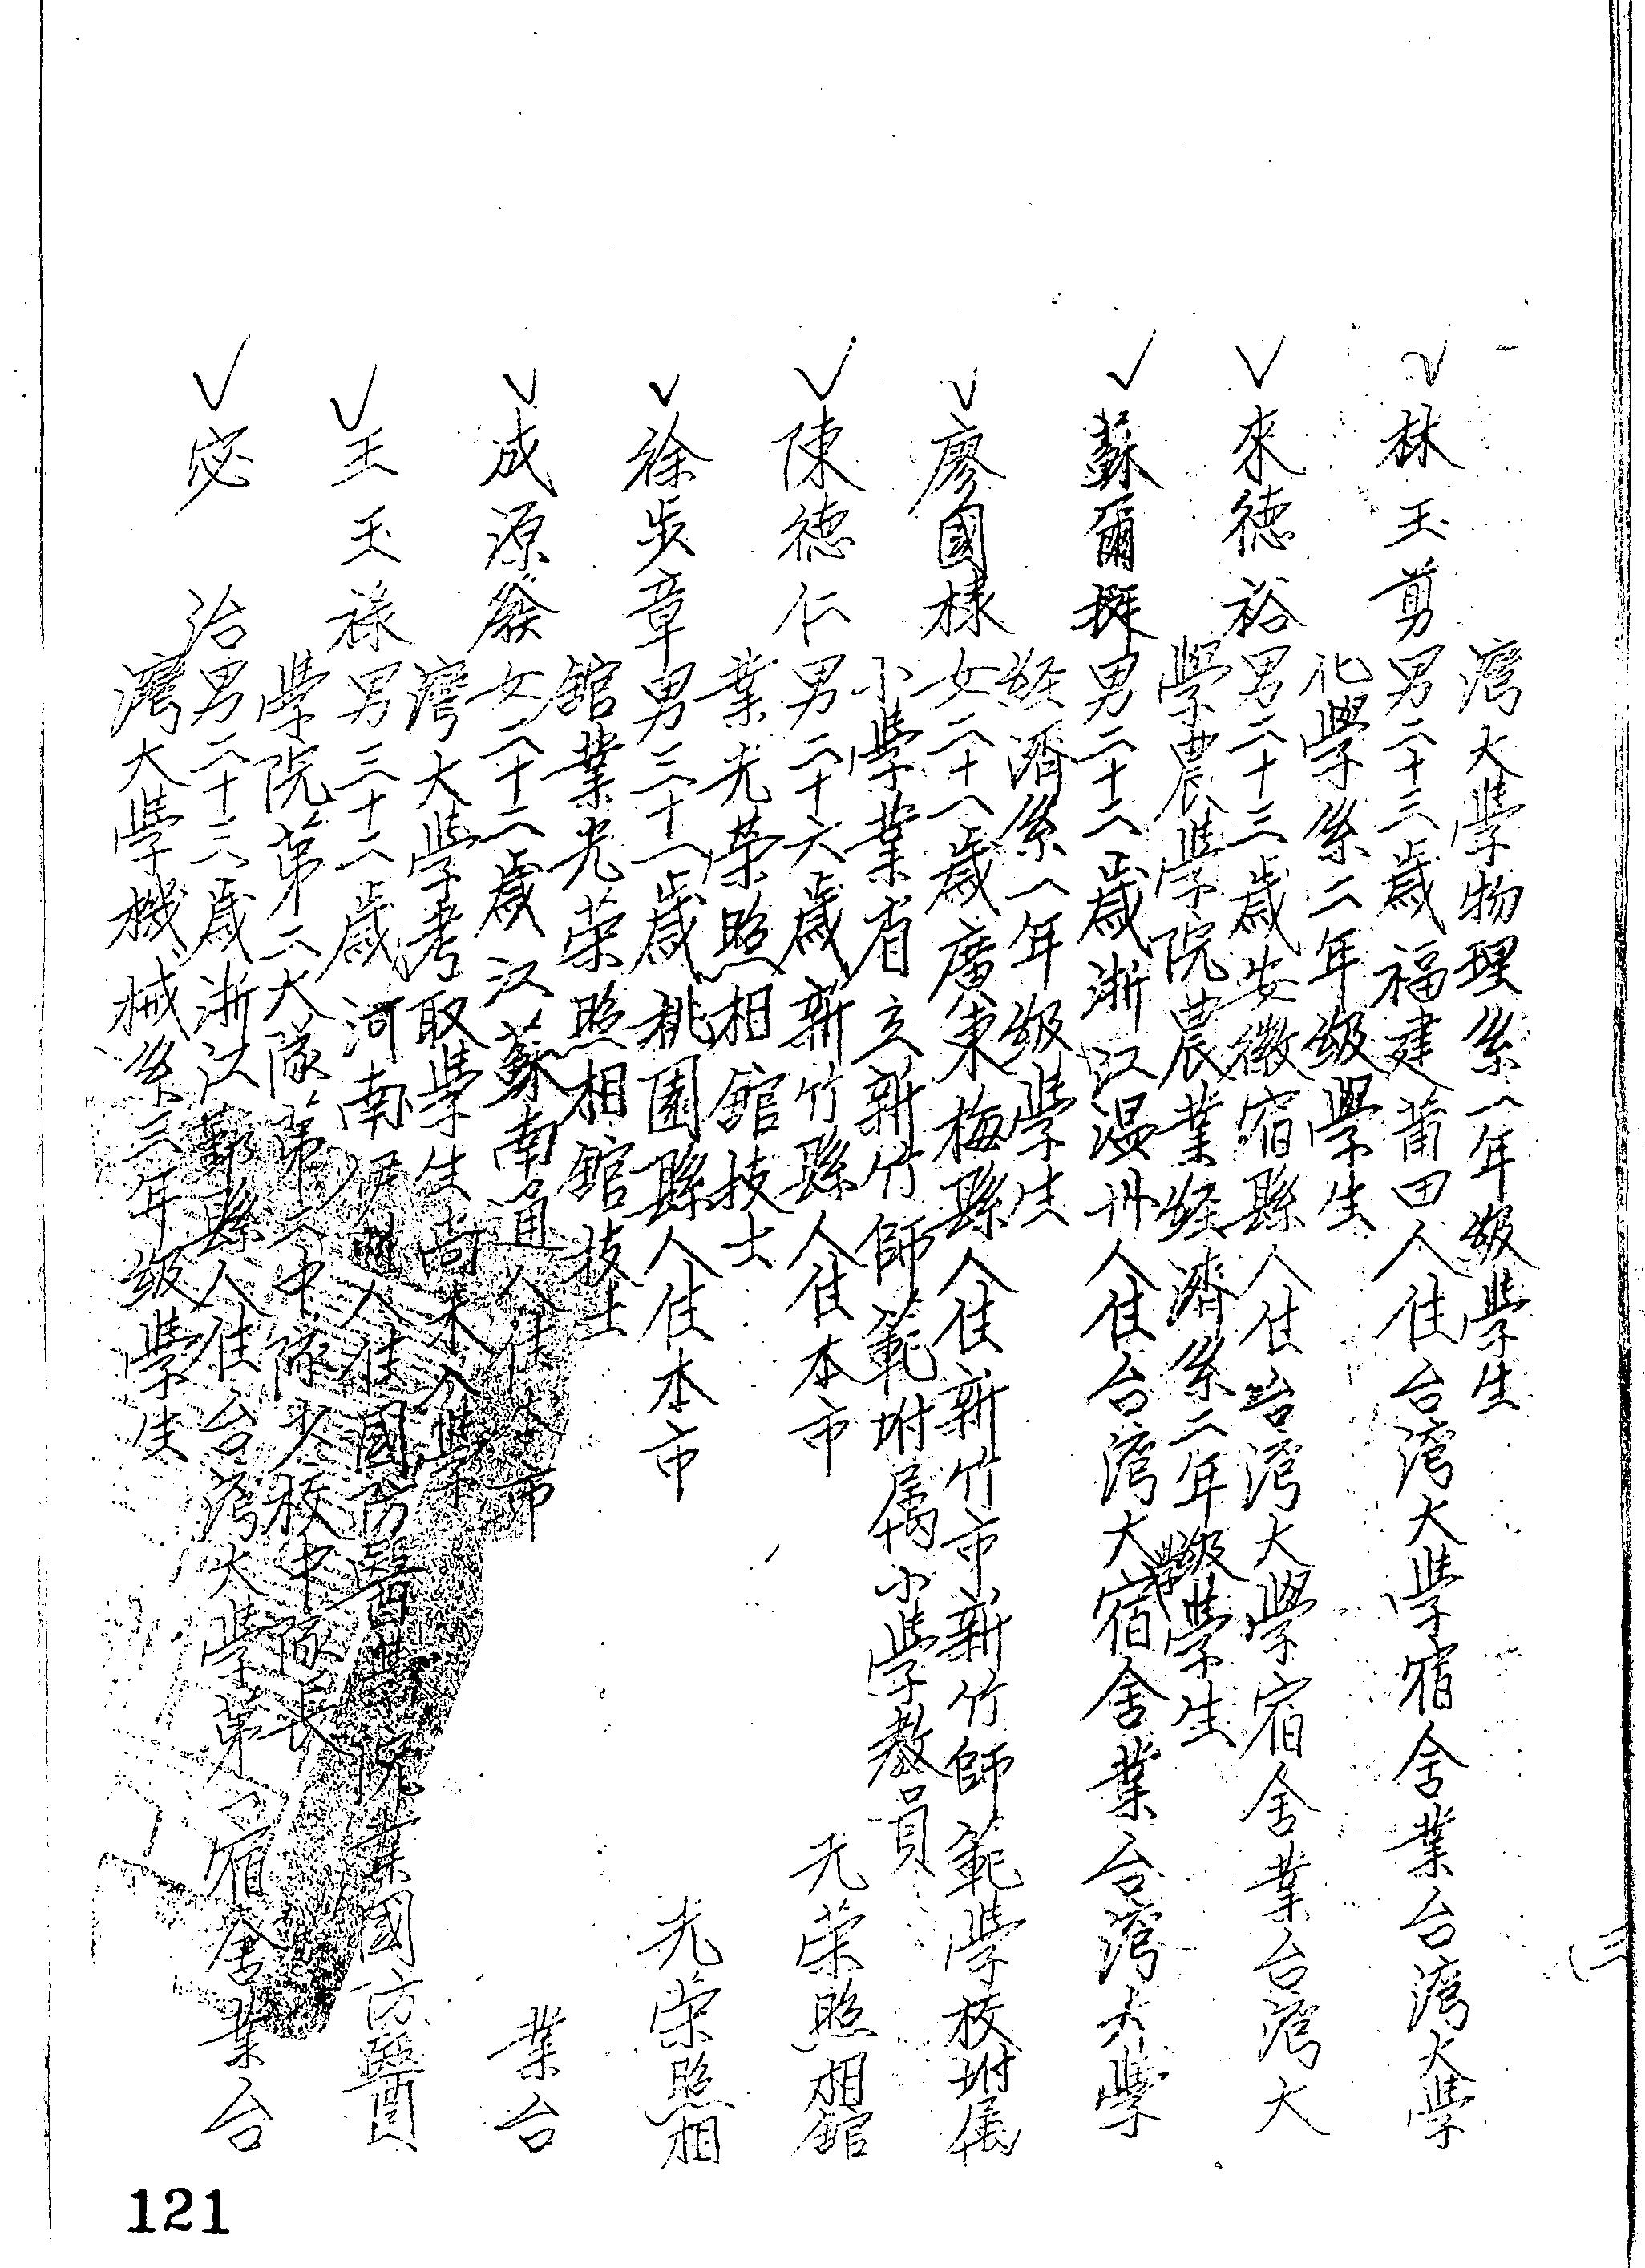 灣大學物理系一年級學生
林玉剪男二十三歲福建莆田人住台灣大學宿舍業台灣大學
化學系二年級學生
來德裕男二十三歲安徽宿縣人住台灣大學宿舍業台灣大
學農學院農業經濟系二年級學生
蘇爾挺男二十二歲浙江温州人住台灣大學宿舍業台灣大學
經濟系一年級學生
廖國樑女二十八歲廣東梅縣人住新竹市新竹師範學校坿属
小學業省立新竹師範坿属小學教員
陳德仁男二十六歲新竹縣人住本市 光荣照相館
業光荣照相館技士
徐步章男三十一歲桃園縣人住本市 光荣照相
館業光荣照相館技士
成源發女二十二歲江蘇南通人住本市 業台
灣大學考取學生尚未入學
王玉祿男三十二歲河南人住國防醫學院業國防醫
學院第二大隊第二中隊少校中隊長
宓 治男二十二歲浙江鄞縣人住台灣大學第一宿舍業台
灣大學機械系三年級學生
(三
121